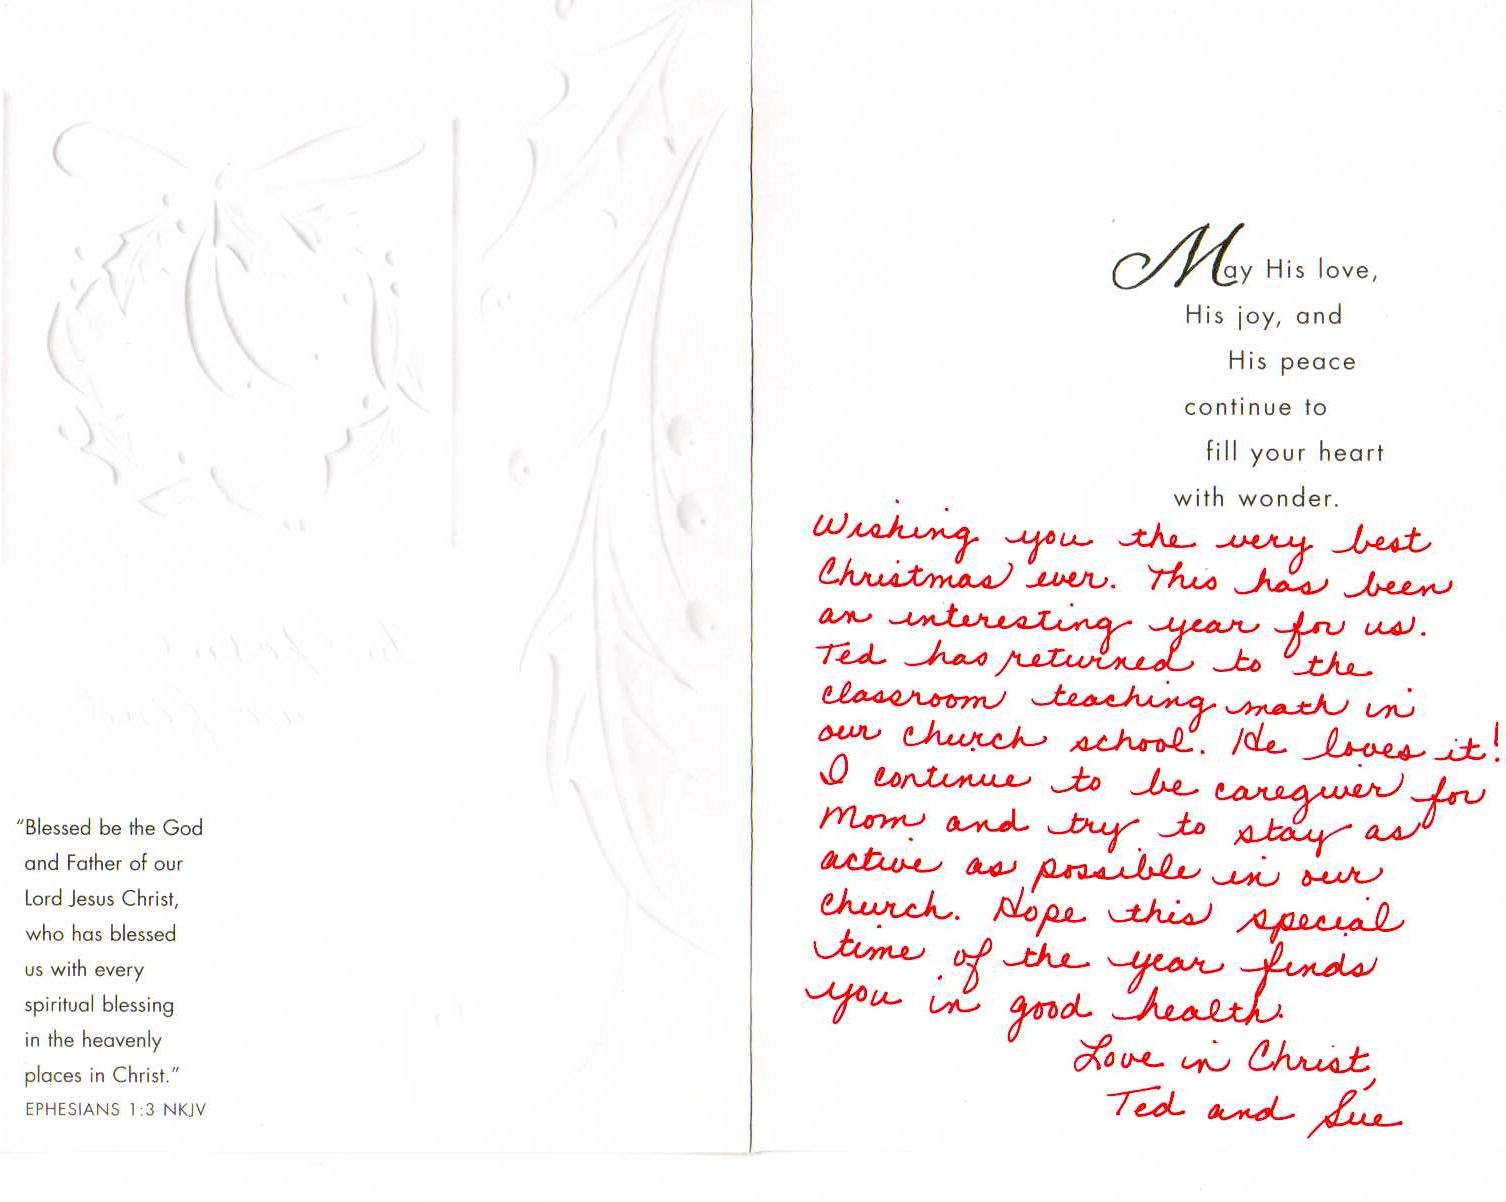 “Blessed be the God
and Father of our
Lord Jesus Christ,
who has blessed
us with every
spiritual blessing
in the heavenly
places in Christ.”
EPHESIANS 1:3 NKJV
May His love,
His joy, and
His peace
continue to
fill your heart
with wonder.
Wishing you the very best
Christmas ever. This has been
an interesting year for us.
Ted has returned to the
classroom teaching math in
our church school. He loves it!
I continue to be caregiver for
Mom and try to stay as
active as possible in our
church. Hope this special
time of the year finds
you in good health.
Love in Christ,
Ted and Sue